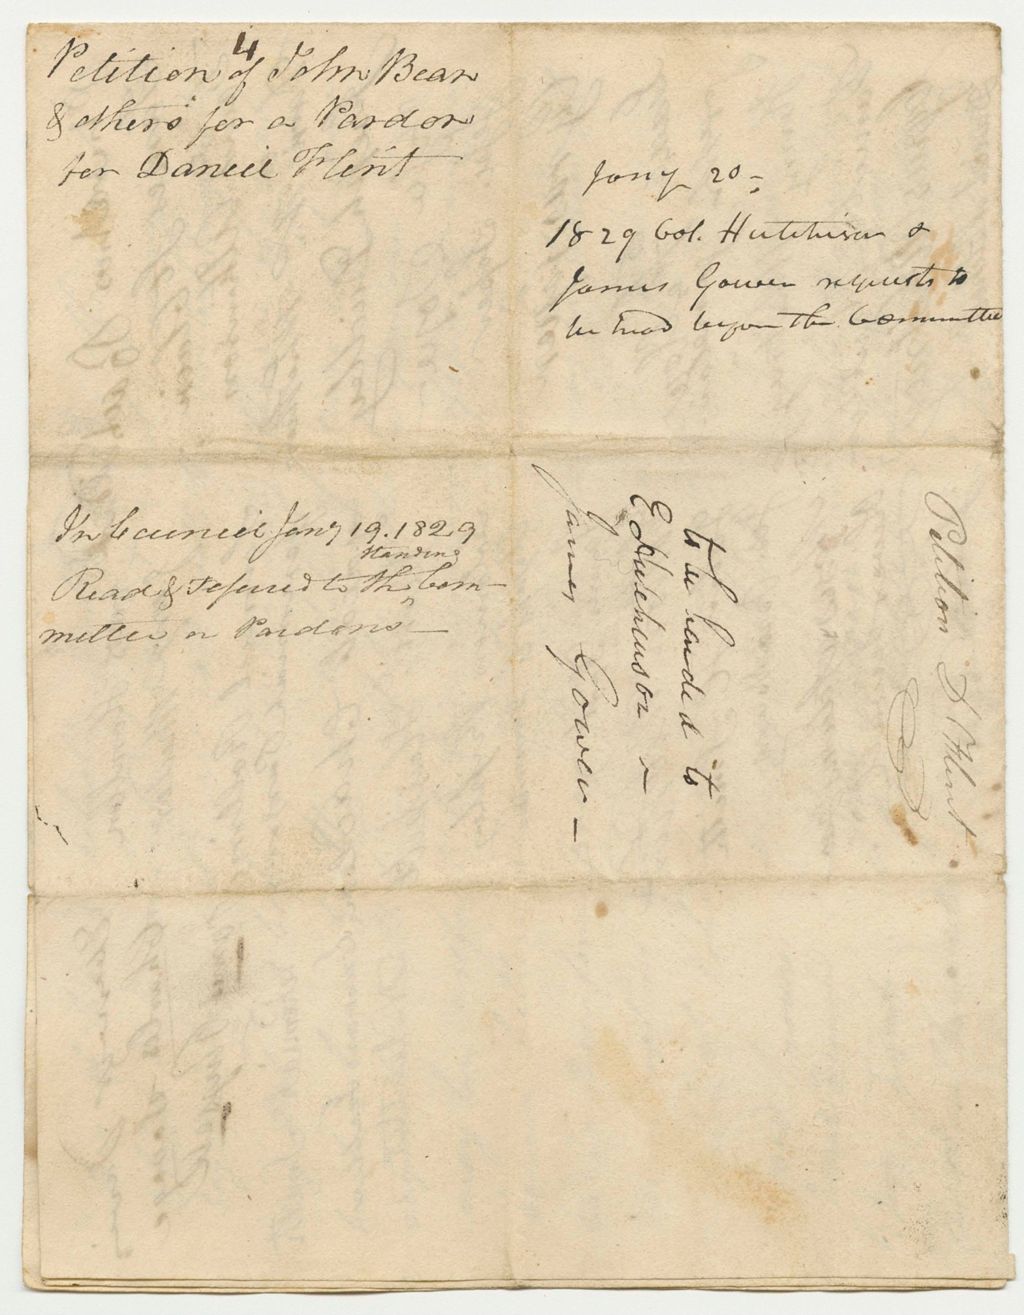 4
Petition of John Bean
& others for a Pardon
for Daniel Flint
Jany 20 -
1829 Col. Hutchison &
James Gowen requests to
be heard before the Committee
In Council Jany 19. 1829
standing
Read & refered to the Com-
mittee on Pardons -
to be handed to
E Hutchinson &
James Gowen -
Petition D Flint